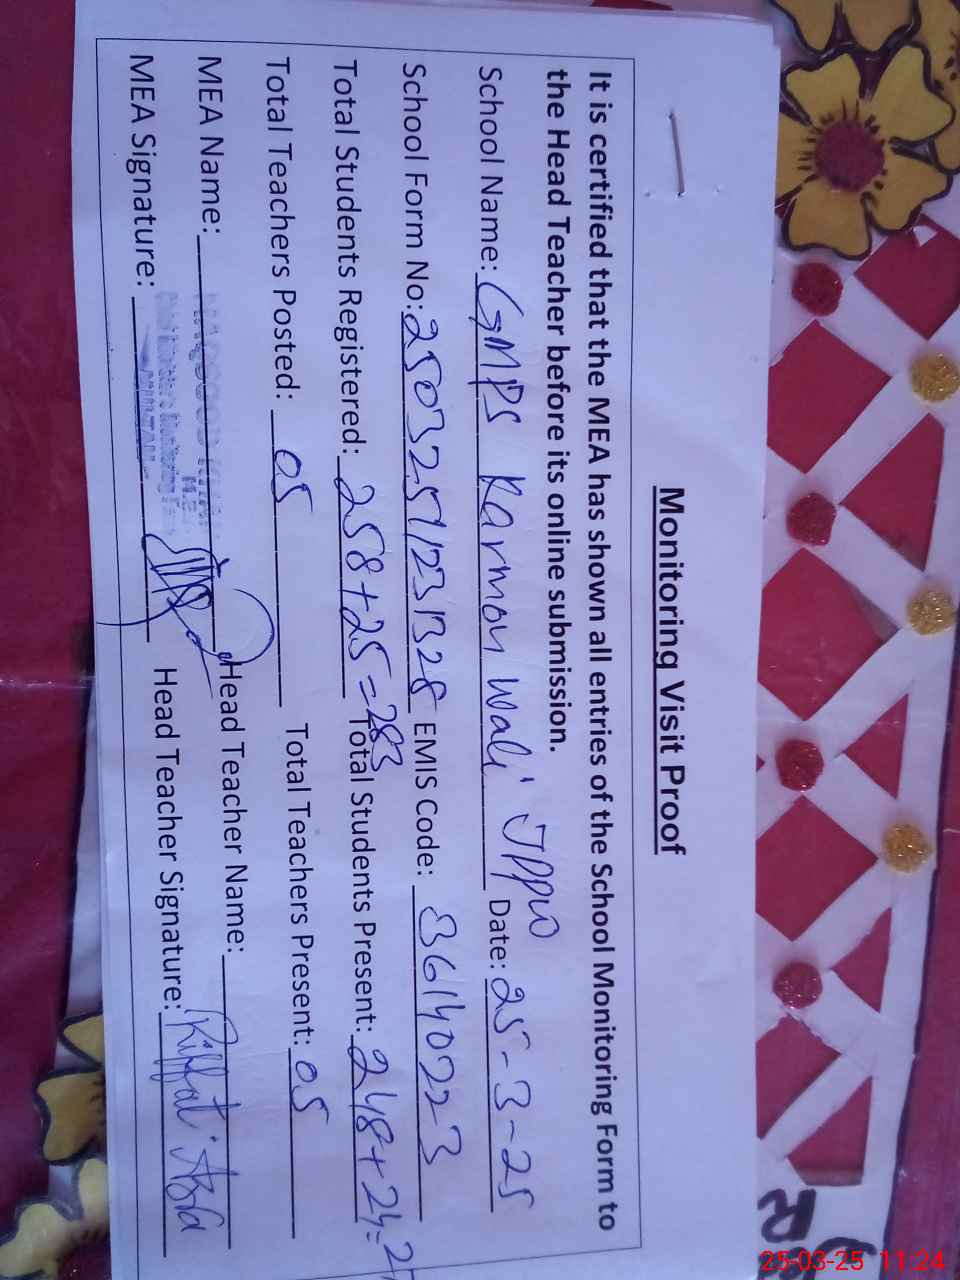 Monitoring Visit Proof
It is certified that the MEA has shown all entries of the School Monitoring Form to
the Head Teacher before its online submission.
School Name: GMPS Karmon Wali JPPW Date: 25-3-25
School Form No: 25032511231328 EMIS Code: 36140223
Total Students Registered: 258+25=283 Total Students Present: 248+24=2
Total Teachers Posted: 05 Total Teachers Present: 05
MEA Name: Head Teacher Name:
MEA Signature: Head Teacher Signature: Riffat
25-03-25 11:24